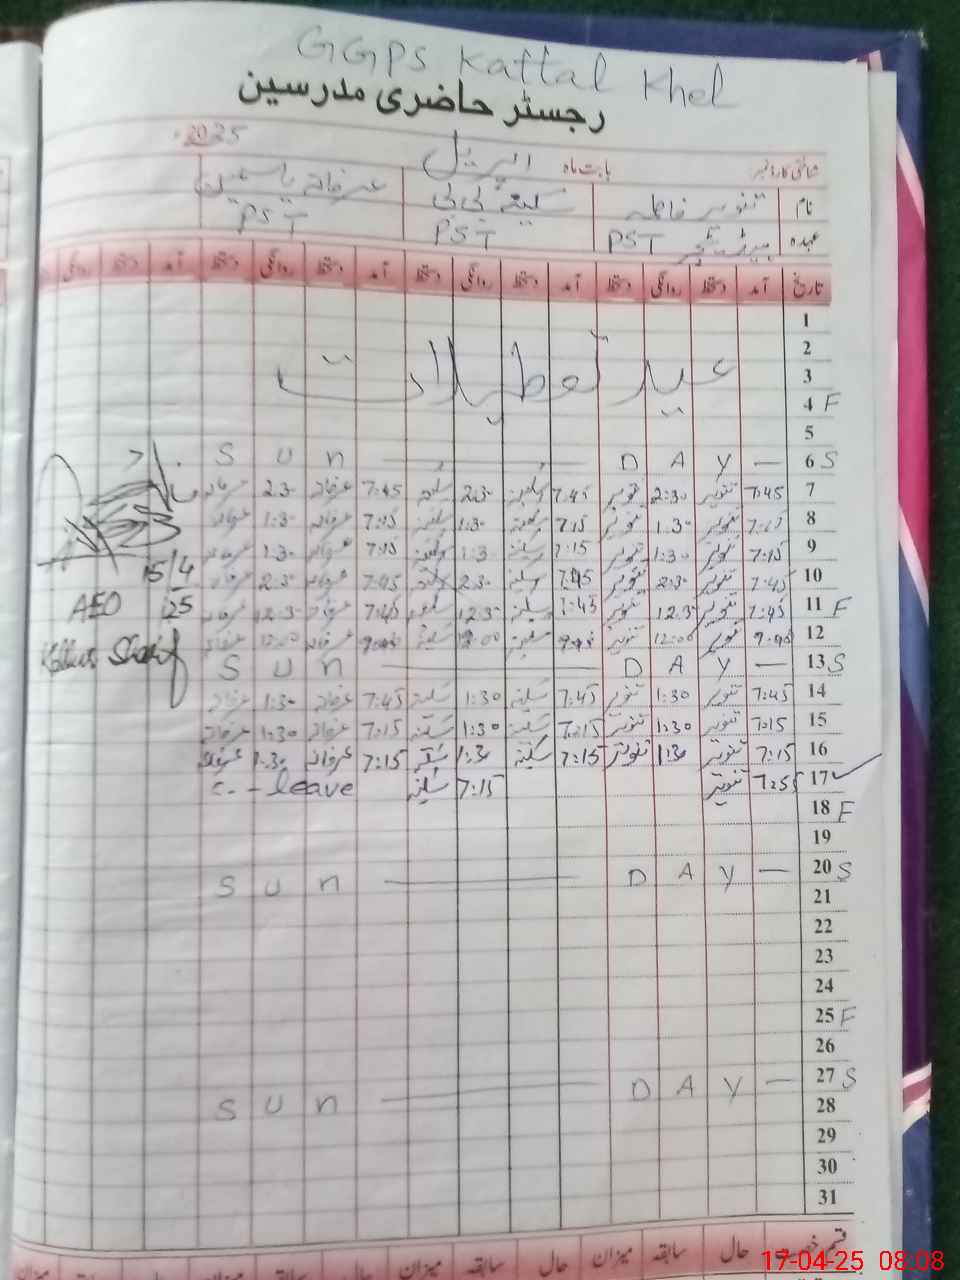 GGPS Kattal Khel
رجسٹر حاضری مدرسین
شناختی کارڈ نمبر بابت ماہ اپریل 2025
نام تنویر فاطمہ سکینہ بی بی عرفانہ یاسمین
عہدہ ہیڈ ٹیچر PST PST PST
تاریخ آمد دستخط روانگی دستخط آمد دستخط روانگی دستخط آمد دستخط روانگی دستخط آمد دستخط روانگی
1
2
عید تعطیلات
3
4 F
5
6 S SUN — DAY —
7 7:45 تنویر 2:30 تنویر 7:45 سکینہ 2:30 سکینہ 7:45 عرفانہ 2:30 عرفانہ
8 7:15 تنویر 1:30 تنویر 7:15 سکینہ 1:30 سکینہ 7:15 عرفانہ 1:30 عرفانہ
9 7:15 تنویر 1:30 تنویر 7:15 سکینہ 1:30 سکینہ 7:15 عرفانہ 1:30 عرفانہ
10 7:45 تنویر 2:30 تنویر 7:45 سکینہ 2:30 سکینہ 7:45 عرفانہ 2:30 عرفانہ
15/4
11 F 7:45 تنویر 12:30 تنویر 7:45 سکینہ 12:30 سکینہ 7:45 عرفانہ 12:30 عرفانہ
AEO 25
12 تنویر 12:00 تنویر سکینہ 12:00 سکینہ عرفانہ 12:00 عرفانہ
13 S SUN — DAY —
14 7:45 تنویر 1:30 تنویر 7:45 سکینہ 1:30 سکینہ 7:45 عرفانہ 1:30 عرفانہ
15 7:15 تنویر 1:30 تنویر 7:15 سکینہ 1:30 سکینہ 7:15 عرفانہ 1:30 عرفانہ
16 7:15 تنویر 1:30 تنویر 7:15 سکینہ 1:30 سکینہ 7:15 عرفانہ 1:30 عرفانہ
17 7:55 تنویر 7:15 سکینہ C. - leave
18 F
19
20 S SUN — DAY —
21
22
23
24
25 F
26
27 S SUN — DAY —
28
29
30
31
حال سابقہ میزان حال سابقہ میزان حال سابقہ میزان
17-04-25 08:08